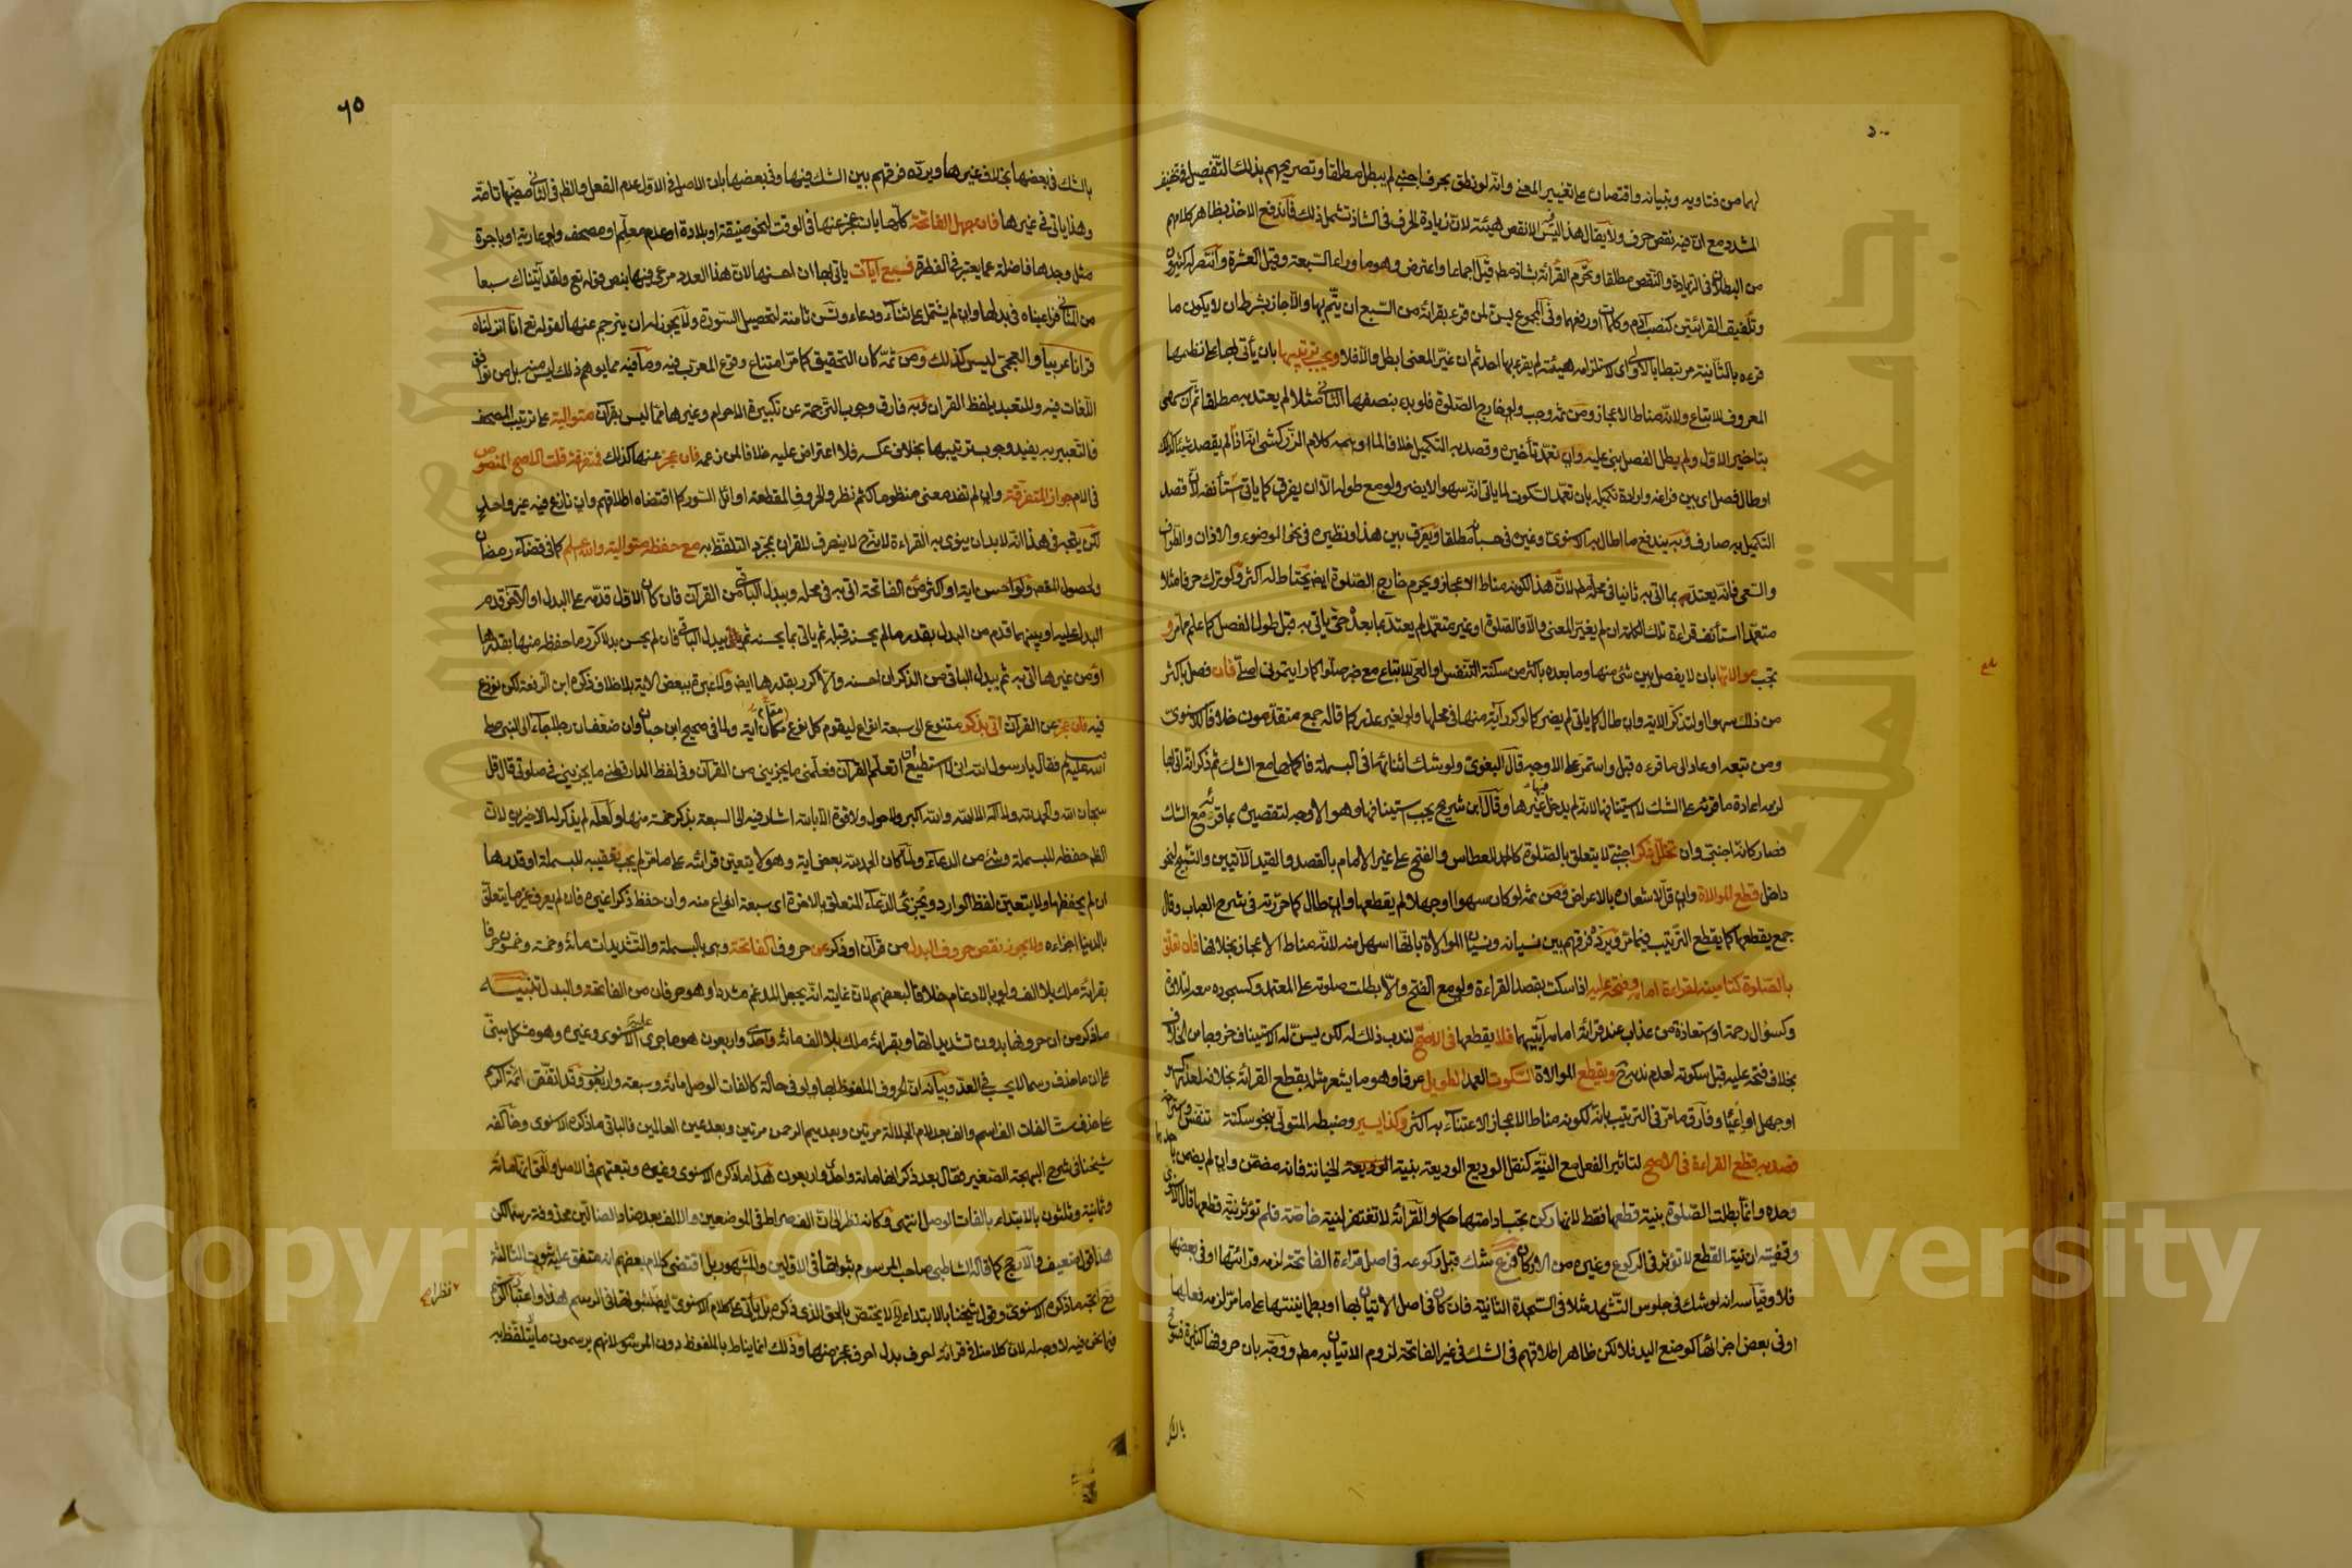 لهما من فتاويه وتبيانه واقتصارى على تغيير المعنى وانه لو نطق بحرف اجنبى لم يبطل مطلقا وتصريحهم بذلك التفصيل فى تخفيف
المشدد مع ان فيه نقص حرف ولا يقال هذا ليس الا نقص هيئة لان زيادة الحرف فى الشاذ تشمل ذلك فاندفع الاخذ بظاهر كلامهم
من البطلان فى الزيادة والنقص مطلقا وتحرم القرائة بشاذ مط قيل اجماعا واعترض وهو ما وراء السبعة وقيل العشرة وانتصر له كثيرون
وتلفيق القرائتين كنصب آدم وكلمات او رفعهما وفى المجموع يسن لمن قرء بقرائة من السبع ان يتم بها والا جاز بشرط ان لا يكون ما
قرءه بالثانية مرتبطا بالاولى اى لاستلزامه هيئة لم يقرء بها احد ثم ان غيّر المعنى ابطل والا فلا ويجب ترتيبها بان يأتى بها على نظمها
المعروف للاتباع ولانه مناط الاعجاز ومن ثمه وجب ولو خارج الصلوة فلو بدء بنصفها الثانى مثلا لم يعتد به مطلقا ثم ان سهى
بتاخير الاول ولم يطل الفصل بنى عليه وان تعمد تأخيره وقصد به التكميل خلافا لما اوهمه كلام الزركشى انه اذا لم يقصد شيئا كذلك
او طال فصل اى بين فراغه وارادة تكميله بان تعمد السكوت لما ياتى انه سهوا لا يضر ولو مع طوله الا ان يفرق كما ياتى استأنف لان قصد
التكميل به صارف وبه يندفع ما اطال به الاسنوى وغيره فى حسبانه مطلقا ويفرق بين هذا ونظيره فى نحو الوضوء والاذان والطواف
والسعى فانه يعتد به بما اتى به ثانيا فى محله مط لان هذا لكونه مناط الاعجاز ويحرم خارج الصلوة ايض يحتاط له اكثر ولو ترك حرفا مثلا
متعمدا استأنف قراءة تلك الكلمة ان لم يغير المعنى والا فالصلوة او غير متعمد لم يعتد بما بعده حتى ياتى به قبل طول الفصل كما علم مما مر و
تجب موالاتها بان لا يفصل بين شئ منها وما بعده باكثر من سكتة التنفس او العى للاتباع مع خبر صلوا كما رايتمونى اصلى فان فصل باكثر
من ذلك سهوا او لتذكر الاية وان طال كما ياتى لم يضر كما لو كرر آية منها فى محلها ولو لغير عذر كما قاله جمع متقدمون خلافا للاسنوى
ومن تبعه او عاد الى ما قرءه قبل واستمر على الاوجه قال البغوى ولو شك اثنائها فى البسملة فاكملها مع الشك ثم ذكر انه اتى بها
لزمه اعادة ما قرئه على الشك لا استينافها لانه لم يدخل فيها غيرها وقال ابن شريح يجب استينافها وهو الاوجه لتقصيره بما قرئه مع الشك
فصار كانه اجنبى وان تخلل ذكر اجنبى لا يتعلق بالصلوة كالحمد للعطاس والفتح على غير الامام بالقصد والقيد الاتيين والتسبيح لنحو
داخل قطع الموالاة وان قل لاشعاره بالاعراض ومن ثمه لو كان سهوا او جهلا لم يقطعها وان طال كما حررته فى شرح العباب وقال
جمع يقطعها كما يقطع الترتيب فيما مر ويرده فرقهم بين نسيانه ونسيان الموالاة بانها اسهل منه لانه مناط الاعجاز بخلافها فان تعلق
بالصلوة كتأمينه لقراءة امامه وفتحه عليه اذا سكت بقصد القراءة ولو مع الفتح والا بطلت صلوته على المعتمد وكسجوده معه لتلاوة
وكسؤال رحمة او استعاذة من عذاب عند قرائة امامه آيتيهما فلا يقطعها فى الاصح لندب ذلك له لكن يسن له الاستيناف خروجا من الخلاف
بخلاف فتحه عليه قبل سكوته لعدم ندبه ح ويقطع الموالاة السكوت العمد الطويل عرفا وهو ما يشعر مثله بقطع القرائة بخلافه لعذر كسهو
او جهل او اعياء وفارق ما مر فى الترتيب بانه لكونه مناط الاعجاز الاعتناء به اكثر وكذا يسير وضبطه المتولى بنحو سكتة تنفس واستراحة
قصد به قطع القراءة فى الاصح لتاثير الفعل مع النية كنقل الوديع الوديعة بنية الخيانة فانه مضمن وان لم يضمن باحدهما
وحده وانما بطلت الصلوة بنية قطعها فقط لانها ركن تجب ادامتها حكما والقرائة لا تفتقر لنية خاصة فلم تؤثر نية قطعها قال الاسنوى
وقضيته ان نية القطع لا تؤثر فى الركوع وغيره من الاركان فرع شك قبل ركوعه فى اصل قراءة الفاتحة لزمه قرائتها او فى بعضها
فلا وقياسه انه لو شك فى جلوس التشهد مثلا فى السجدة الثانية فان كان فى اصل الاتيان بها او بطمانينتها على ما مر لزمه فعلها
او فى بعض اجزائها كوضع اليد فلا لكن ظاهر اطلاقهم فى الشك فى غير الفاتحة لزوم الاتيان به مط ووجه بان حروفها كثيرة فسومح
بالشك
٦٥
بالشك فى بعضها بخلاف غيرها ويرده فرقهم بين الشك فيها وفى بعضها بان الاصل فى الاول عدم الفعل والظ فى الثانى مضيها تامة
وهذا ياتى فى غيرها فان جهل الفاتحة كلها بان عجز عنها فى الوقت لنحو ضيقه او بلادة او عدم معلم او مصحف ولو عارية او باجرة
مثل وجدها فاضلة عما يعتبر فى الفطرة فسبع آيات ياتى بها ان احسنها لان هذا العدد مرعى فيها بنص قوله تع ولقد آتيناك سبعا
من المثانى فراعيناه فى بدلها وان لم يشتمل على ثناء ودعاء وتسن ثامنة لتحصيل السورة ولا يجوز له ان يترجم عنها لقوله تع انا انزلناه
قرانا عربيا والعجمى ليس كذلك ومن ثمه كان التحقيق كما مر امتناع وقوع المعرب فيه وما فيه مما يوهم ذلك ليس منه بل من توافق
اللغات فيه وللتعبد بلفظ القران وبه فارق وجوب الترجمة عن تكبيرة الاحرام وغيرها مما ليس بقرآن متوالية على ترتيب المصحف
فالتعبير به يفيد وجوب ترتيبها بخلاف عكسه فلا اعتراض عليه خلافا لمن زعمه فان عجز عنها كذلك فمتفرقة قلت الاصح المنصوص
فى الام جواز المتفرقة وان لم تفد معنى منظوما كثم نظر والحروف المقطعة اوائل السور كما اقتضاه اطلاقهم وان نازع فيه غير واحد
لكن يتجه فى هذا انه لا بد ان ينوى به القراءة لانه ح لا ينصرف للقران بمجرد التلفظ به مع حفظه متوالية والله اعلم كما فى قضاء رمضان
ولحصول المقص ولو احسن اية او اكثر من الفاتحة اتى به فى محله ويبدل الباقى من القرآن فان كان الاول قدمه على البدل او الاخر قدم
البدل عليه او بينهما قدم من البدل بقدر ما لم يحسن قبله ثم ياتى بما يحسنه ثم يبدل الباقى فان لم يحسن بدلا كرر ما حفظه منها بقدرها
او من غيرها اتى به ثم يبدل الباقى من الذكر ان احسنه والا كرر بقدرها ايض ولا عبرة ببعض الاية بلا خلاف ذكره ابن الرفعة لكن نوزع
فيه فان عجز عن القرآن اتى بذكر متنوع الى سبعة انواع ليقوم كل نوع مكان اية ولما فى صحيح ابن حبان وان ضعف ان رجلا جاء الى النبى صلى
الله عليه وسلم فقال يا رسول الله انى لا استطيع ان اتعلم القرآن فعلمنى ما يجزينى من القرآن وفى لفظ الدارقطنى ما يجزينى فى صلوتى قال قل
سبحان الله والحمد لله ولا اله الا الله والله اكبر ولا حول ولا قوة الا بالله اشار فيه الى السبعة بذكر خمسة منها ولعله لم يذكر له الاخيرين لان
الظ حفظه للبسملة وشئ من الدعاء ولما كان الحمد لله بعض اية وهو لا يتعين قرائته على ما مر لم يجب تعقيبه للبسملة او قدرها
ان لم يحفظها ولا يتعين لفظ الوارد ويجزئ الدعاء المتعلق بالاخرة اى سبعة انواع منه وان حفظ ذكرا غيره فان لم يعرف غير ما يتعلق
بالدنيا اجزاءه ولا يجوز نقص حروف البدل من قرآن او ذكر عن حروف الفاتحة وهى بالبسملة والتشديدات مائة وخمسة وخمسون حرفا
بقرائة ملك بلا الف ولو بالادغام خلافا لبعضهم لان غايته انه يجعل المدغم مشددا وهو حرفان من الفاتحة والبدل تنبيه
ما ذكر من ان حروفها بدون تشديداتها وبقرائة ملك بلا الف مائة واحدى واربعون هو ما جرى عليه الاسنوى وغيره وهو مشكل مبنى
على ان ما حذف رسما لا يحسب فى العد وبيانه ان الحروف الملفوظ بها ولو فى حالة كالفات الوصل مائة وسبعة واربعون وقد اتفق ائمة الرسم
على حذف ست الفات الف اسم والف بعد لام الجلالة مرتين وبعد ميم الرحمن مرتين وبعد عين العالمين فالباقى ما ذكره الاسنوى وخالفه
شيخنا فى شرح البهجة الصغير فقال بعد ذكر انها مائة واحد واربعون هذا ما ذكره الاسنوى وغيره وتبعتهم فى الاصل والحق انها مائة
وثمانية وثلثون بالابتداء بالفات الوصل انتهى وكانه نظر الى ان الف صراط فى الموضعين والالف بعد ضاد الضالين محذوفة رسما لكن
هذا قول ضعيف والارجح كما قاله الشاطبى صاحب المرسوم ثبوتها فى الاولين والمشهور بل اقتضى كلام بعضهم انه متفق عليه ثبوت الثالثة
فح اتجه ما ذكره الاسنوى وقول شيخنا بالابتداء الخ لا يختص بالحق الذى ذكره بل ياتى على كلام الاسنوى ايض لثبوتها فى الرسم هذا واعتبار الرسم
فيما نحن فيه لا وجه له لان كلامنا فى قرائة احرف بدل احرف عجز عنها وذلك انما يناط بالملفوظ دون المرسوم لانهم يرسمون ما لا يتلفظ به
Copyright © King Saud University